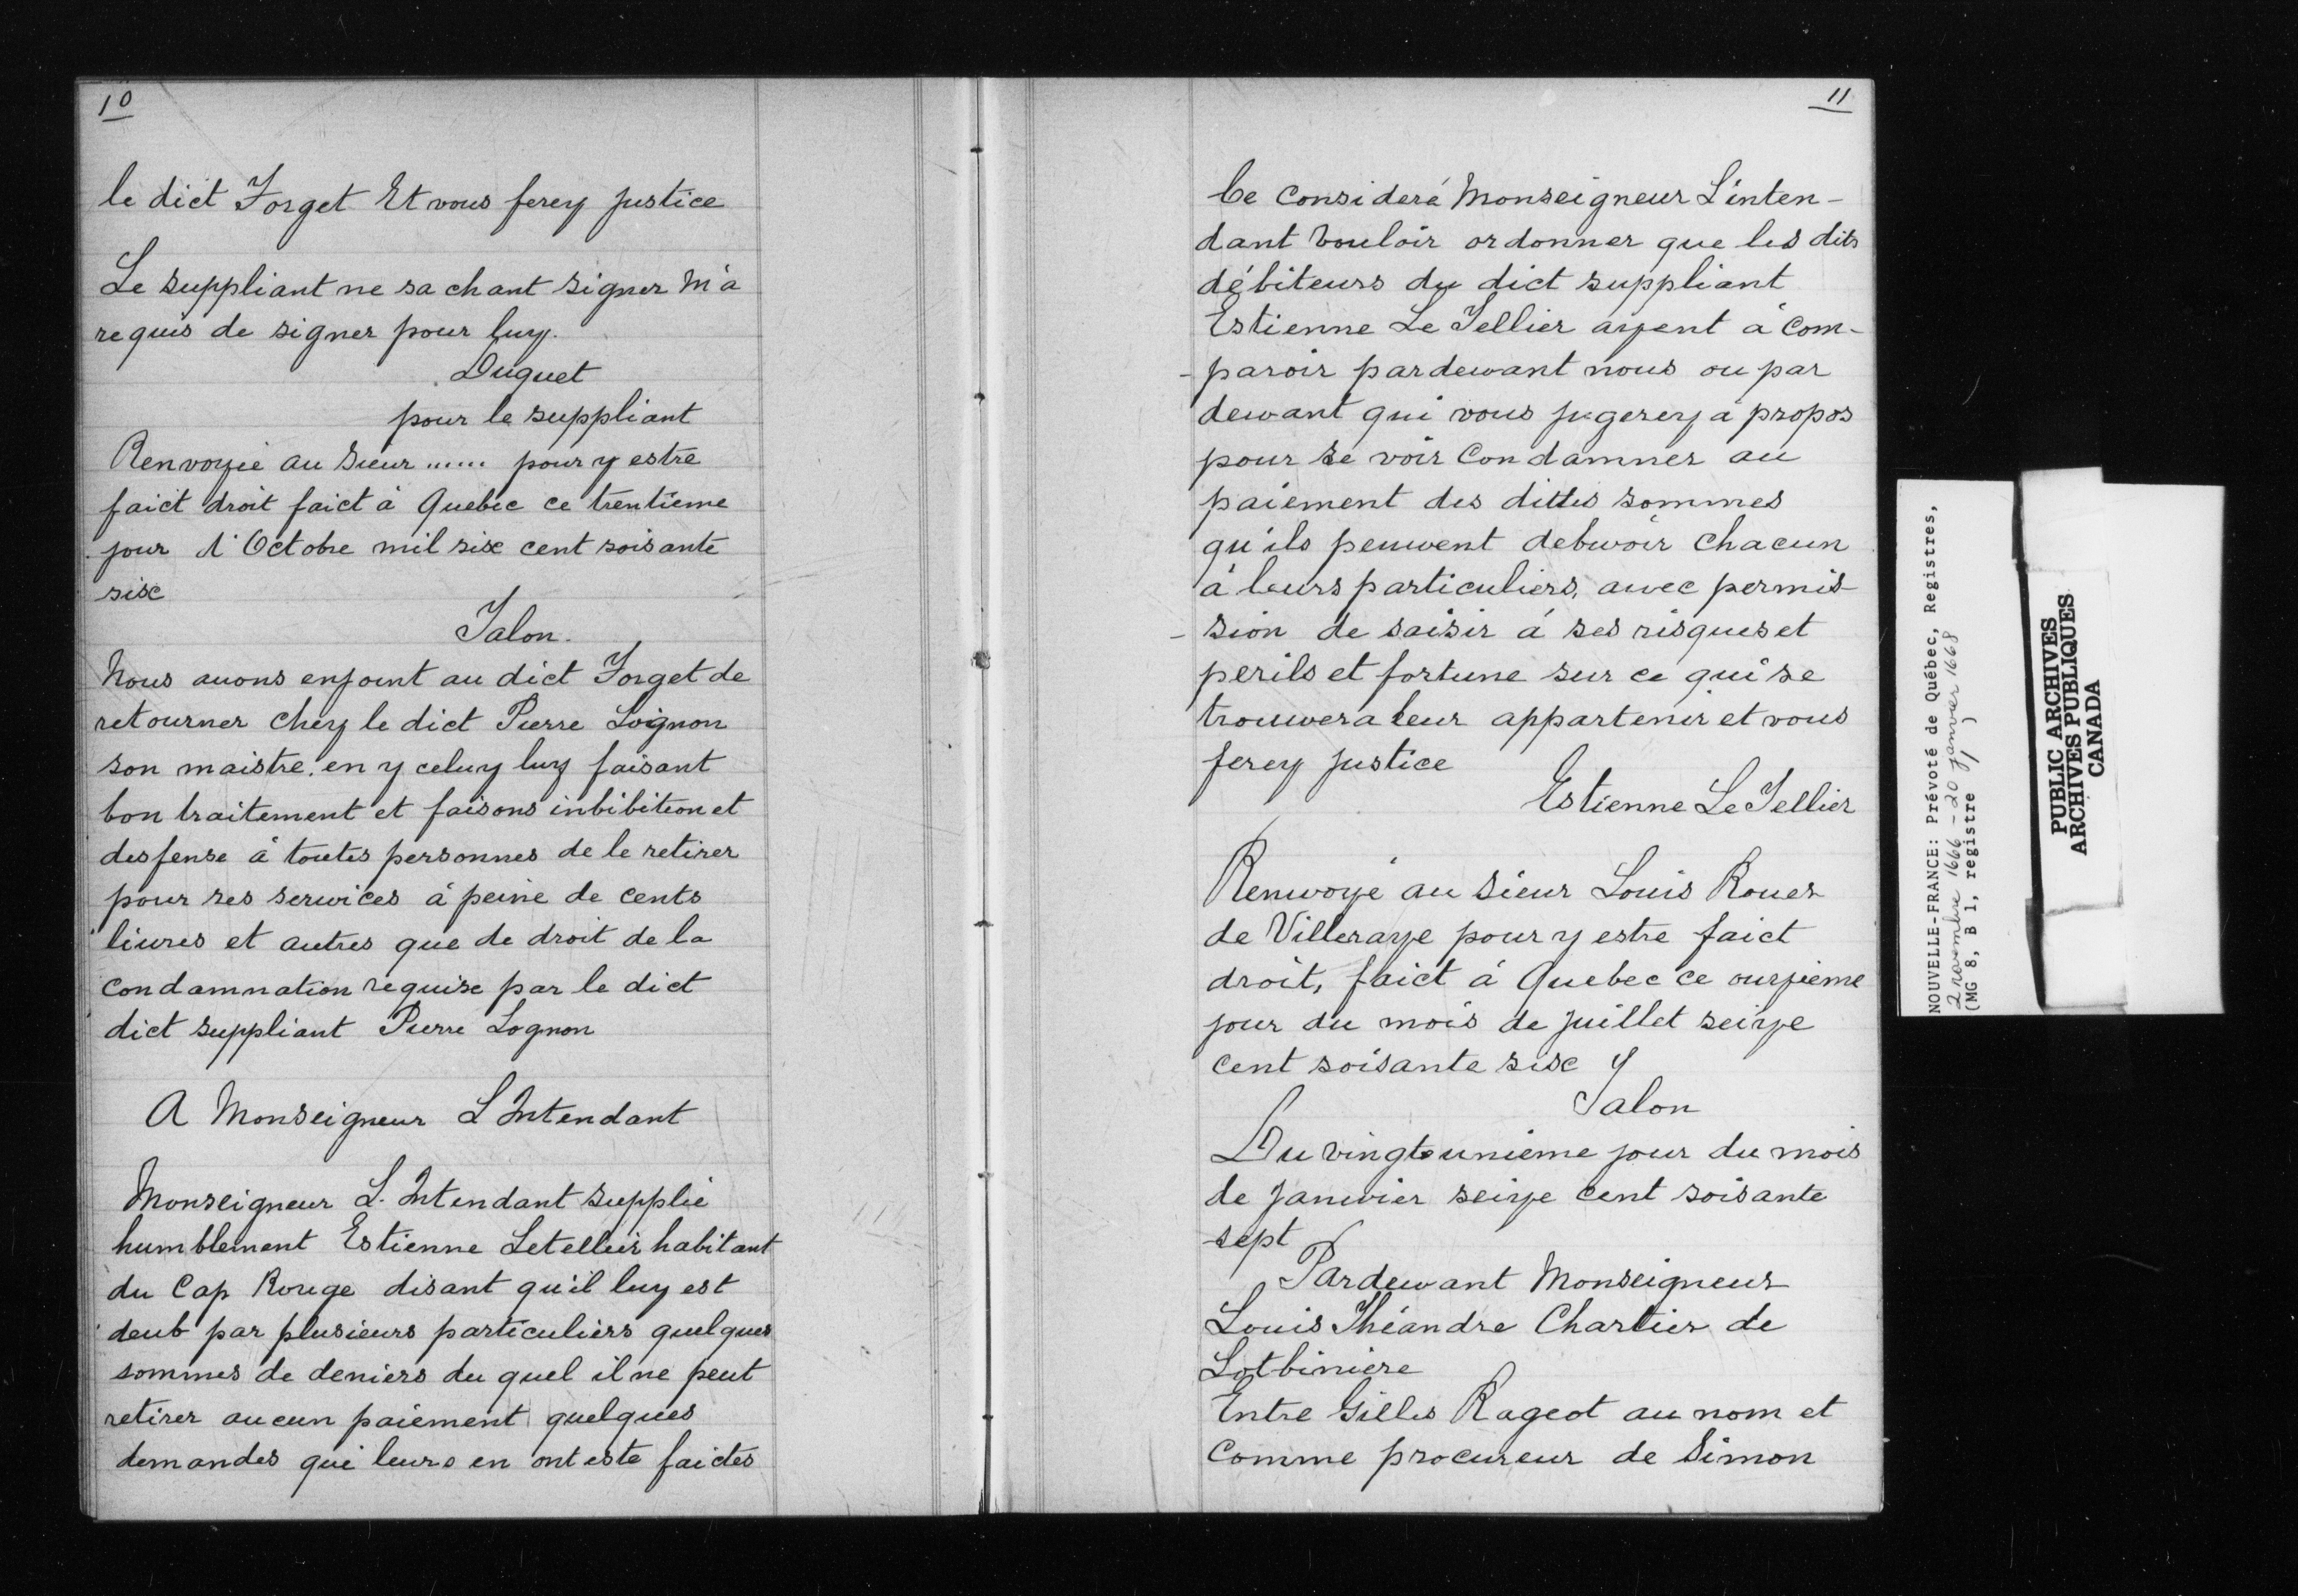 10
le dict Forget Et vous ferez justice
Le suppliant ne sachant signer M'a
requis de signer pour luy.
Duguet
pour le suppliant
Renvoyié au Sieur ...... pour y estre
faict droit faict à Quebec ce trentième
jour d'Octobre mil six cent soisante
six
Talon.
Nous auons enjoint au dict Forget de
retourner chez le dict Pierre Loignon
son maistre. en y celuy luy faisant
bon traitement et faisons inbibition et
desfense à toutes personnes de le retirer
pour ses serwices à peine de cents
liures et autres que de droit de la
condamnation requise par le dict
dict suppliant Pierre Lognon
A Monseigneur L Intendant
Monseigneur L. Intendant supplie
humblement Estienne Letellier habitant
du Cap Rouge disant qu'il luy est
deub par plusieurs particuliers quelques
sommes de deniers du quel il ne peut
retirer aucun paiement quelques
demandes qui leurs en ont este faictes
11
Ce consideré Monseigneur L'inten-
dant vouloir ordonner que les dits
débiteurs du dict suppliant
Estienne Le Tellier ayent à com-
-paroir pardewant nous ou par
dewant qui vous jugerez à propos
pour se voir Condamner au
paiement des dittes sommes
qu'ils peuwent debwoir chacun
à leurs particuliers, awec permis-
-sion de saisir à ses risques et
perils et fortune sur ce qui se
trouwera leur appartenir et vous
ferez justice
Estienne Le Tellier
Renwoyé au sieur Louis Rouer
de Villeraye pour y estre faict
droit, faict à Quebec ce ourzième
jour du mois de juillet seize
cent soisante six
Talon
Du vingt unième jour du mois
de janwier seize cent soisante
sept
Pardewant Monseigneur
Louis Théandre Chartier de
Lotbinière
Entre Gilles Rageot au nom et
Comme procureur de Simon
NOUVELLE-FRANCE: Prévoté de Québec, Registres,
2 novembre 1666 - 20 janvier 1668
(MG 8, B 1, registre 1)
PUBLIC ARCHIVES
ARCHIVES PUBLIQUES
CANADA